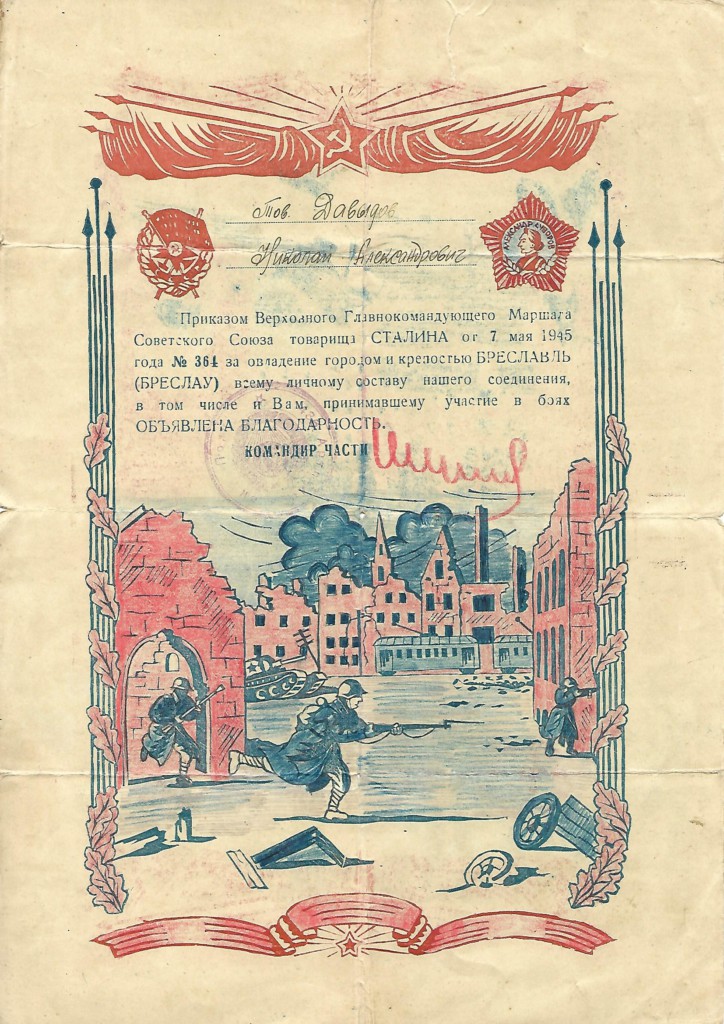 Тов. Давыдов
Николай Александрович
АЛЕКСАНДР СУВОРОВ
Приказом Верховного Главнокомандующего Маршала
Советского Союза товарища СТАЛИНА от 7 мая 1945
года № 364 за овладение городом и крепостью БРЕСЛАВЛЬ
(БРЕСЛАУ) всему личному составу нашего соединения,
в том числе и Вам, принимавшему участие в боях
ОБЪЯВЛЕНА БЛАГОДАРНОСТЬ.
КОМАНДИР ЧАСТИ